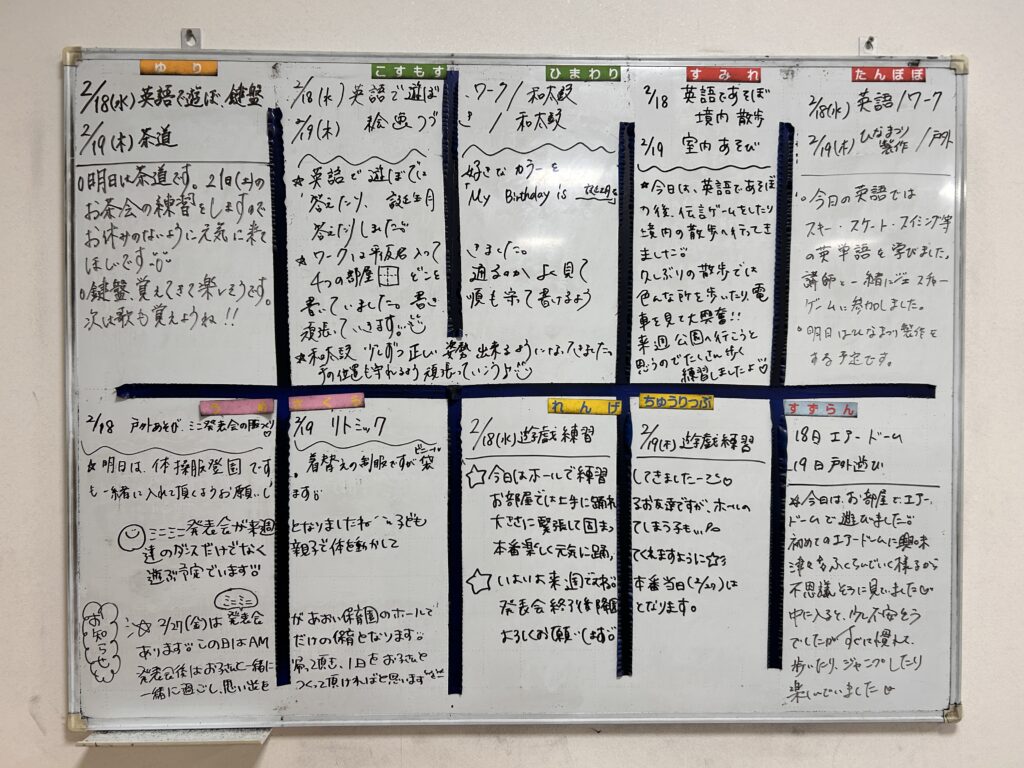 ゆり
2/18(水) 英語で遊ぼ、鍵盤
2/19(木) 茶道
○明日は茶道です。21日(土)の
お茶会の練習をしますので
お休みのないように元気に来て
ほしいです
○鍵盤、覚えてきて楽しそうです。
次は歌も覚えようね!!
こすもす
2/18(水) 英語で遊ぼ
2/19(木)
★英語で遊ぼでは
答えたり、誕生月
答えたりしました。
★ワークは平仮名 入って
4つの部屋 どこを
書いていました。書き
頑張っていきます。
★和太鼓 少しずつ正しい姿勢 出来るようになってきました。
その位置も守れるよう頑張っていこうね
ひまわり
ワーク/和太鼓
/和太鼓
好きなカラーを
My Birthday is
きました。
通るのか よく見て
順も守って書けるよう
すみれ
2/18 英語であそぼ
境内 散歩
2/19 室内あそび
★今日は、英語であそぼ
の後、伝言ゲームをしたり
境内の散歩へ行ってき
ました
久しぶりの散歩では
色んな所を歩いたり、電
車を見て大興奮!!
来週公園へ行こうと
思うのでたくさん歩く
練習しましたよ♡
たんぽぽ
2/18(水) 英語/ワーク
2/19(木) ひなまつり製作/戸外
○今日の英語では
スキー・スケート・スイミング等
の英単語を学びました。
講師と一緒にジェスチャー
ゲームに参加しました。
○明日はひなまつり製作を
する予定です。
2/18 戸外あそび、ミニ発表会の
★明日は、体操服登園です
も一緒に入れて頂くようお願いし
ミニミニ発表会が来週
達のダンスだけでなく
遊ぶ予定でいます
お知らせ
ミニミニ
☆2/27(金)は発表会
あります この日はAM
発表会後はお子さんと一緒に
一緒に過ごし、思い出を
さくら
2/19 リトミック
着替えの制服ですが 袋
ます
となりましたね 子ども
親子で体を動かして
があおい保育園のホールで
だけの保育となります
帰って頂き、1日をお子さんと
つくって頂ければと思います
れんげ
2/18(水) 遊戯練習
☆今日はホールで練習
お部屋では上手に踊れ
大きさに緊張して固ま
本番楽しく元気に踊
☆いよいよ来週ですね
発表会終了後降園
よろしくお願いします
ちゅうりっぷ
2/19(木) 遊戯練習
してきましたーっ♡
るお友達ですが、ホールの
てしまう子も…
てくれますように☆
本番当日(2/27)は
となります。
すずらん
18日 エアードーム
19日 戸外遊び
☆今日は、お部屋で、エアー
ドームで遊びました
初めてのエアードームに興味
津々 ふくらんでいく様子から
不思議そうに見ていました
中に入ると、少し不安そう
でしたがすぐに慣れて
歩いたり、ジャンプしたり
楽しんでいました